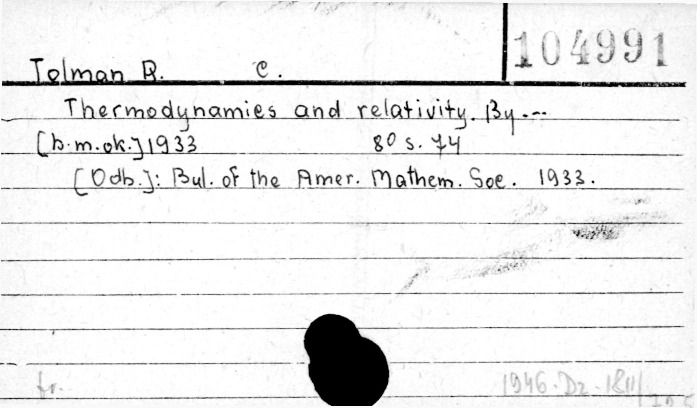 104991
Tolman R. C.
Thermodynamies and relativity. By ---
[b.m.ok.] 1933 8º s. 74
[Odb.]: Bul. of the Amer. Mathem. Soc. 1933.
1946. Dz.